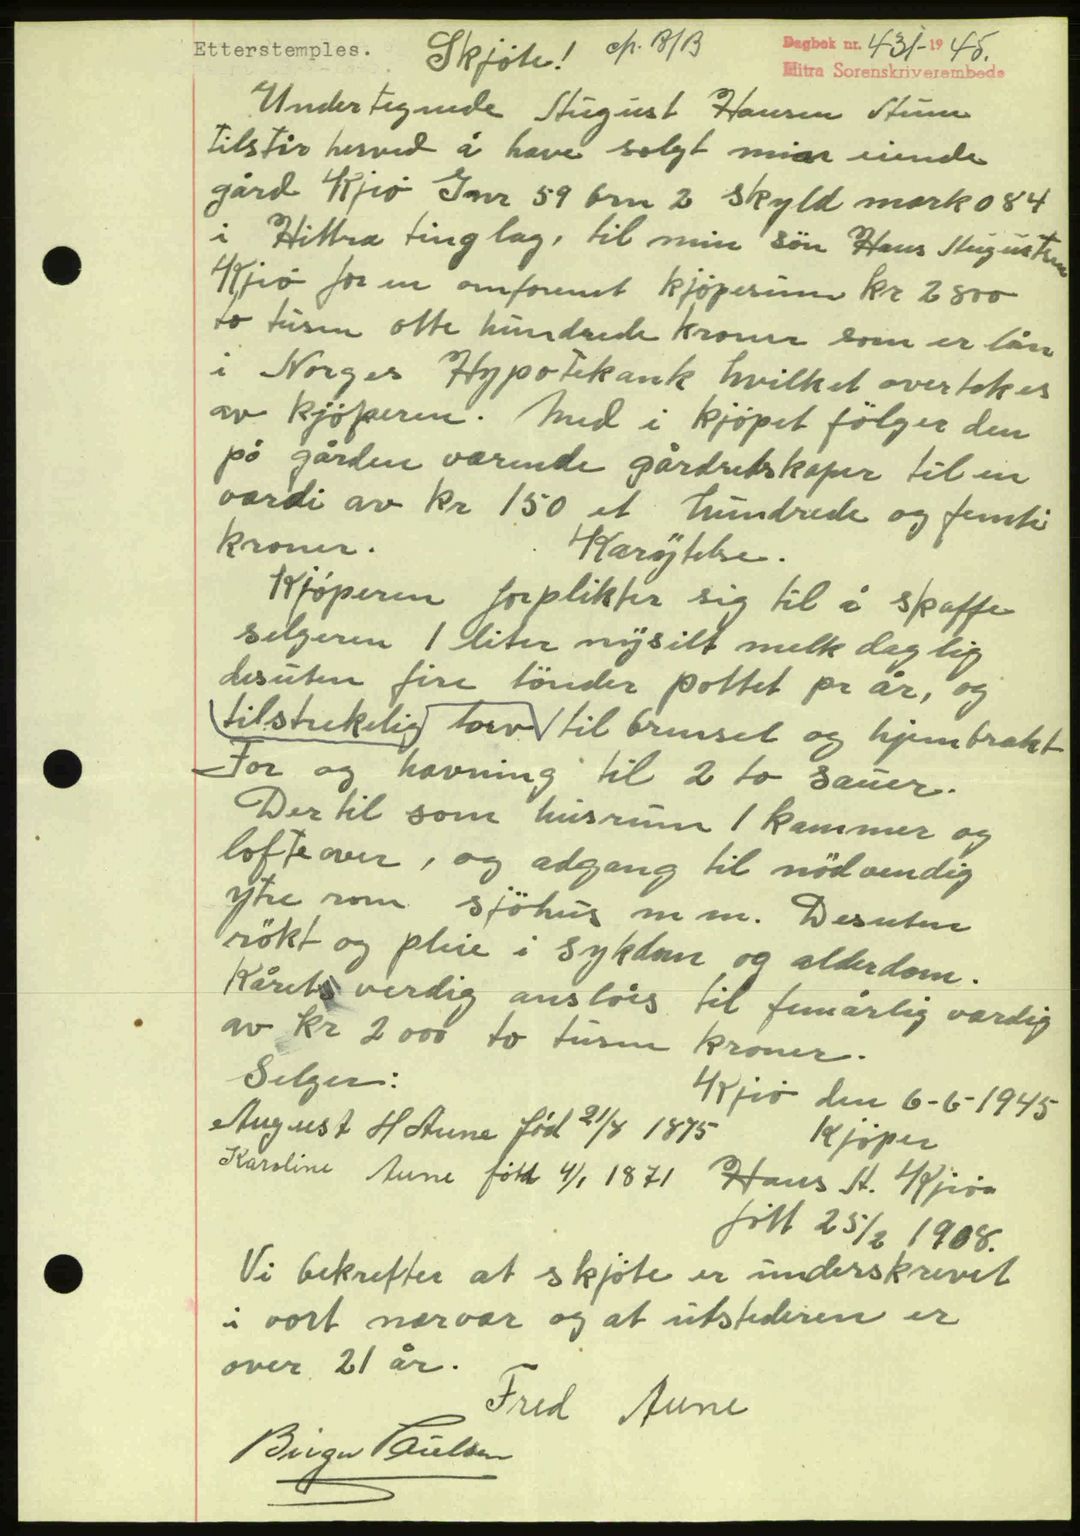 Etterstemples.
Skjöte! cp. B/B
Dagbok nr. 431-1945.
Hitra Sorenskriverembede
Undertegnede August Hansen Aune
tilstår herved å have solgt min eiende
gård Kjiö Gnr 59 brn 2 skyld mark 084
i Hittra tinglag, til min sön Hans Augustsen
Kjiö for en omforenet kjöpesum kr 2800
to tusen otte hundrede kroner som er lån
i Norges Hypotekank hvilket overtokes
av kjöperen. Med i kjöpet fölger den
på gården værende gårdredskaper til en
værdi av kr 150 et hundrede og femti
kroner.
Kårytelse.
Kjöperen forplikter sig til å skaffe
selgeren 1 liter nysilt melk daglig
desuten fire tönder pottet pr år, og
tilstrekelig torv til brensel og hjembrakt
For og havning til 2 to sauer.
Der til som husrum 1 kammer og
lofte over, og adgang til nödvendig
ytre rom sjöhus m m. Desuten
rökt og pleie i sykdom og alderdom.
Kårets verdig anslåes til femårlig værdig
av kr 2000 to tusen kroner.
Kjiö den 6-6-1945
Selger:
August H Aune född 21/8 1875
Karoline Aune född 4/1 1871
Kjöper
Hans A. Kjiö
fött 25/2 1908.
Vi bekrefter at skjöte er underskrevet
i vort nærvær og at utstederen er
over 21 år.
Fred Aune
Birger